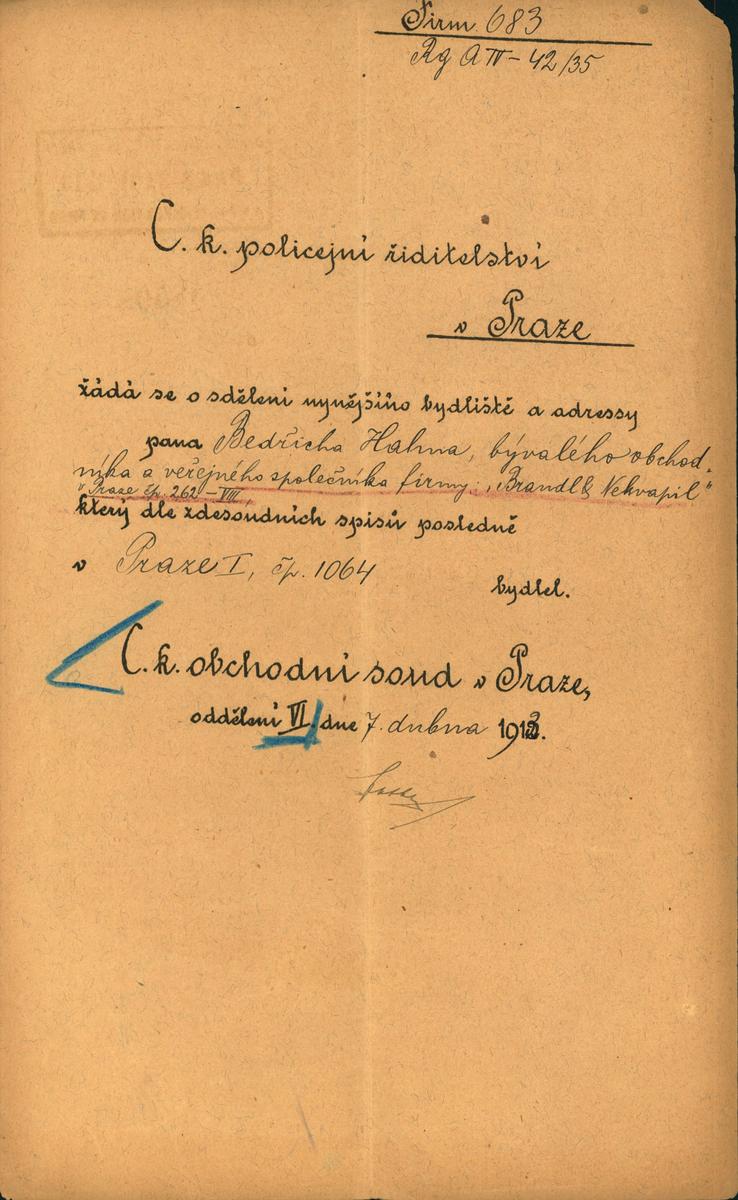 Firm. 683
Rg A IV - 42/35
C. k. policejni řiditelstvi
v Praze
žádá se o sděleni nynějšiho bydliště a adressy
pana Bedřicha Hahna, bývalého obchod-
níka a veřejného společníka firmy: „Brandl & Nekvapil"
v Praze čp. 262 - VIII,
který dle zdesoudnich spisů posledně
v Praze I, čp. 1064
bydlel.
C. k. obchodni soud v Praze,
odděleni VI. dne 7. dubna 1913.